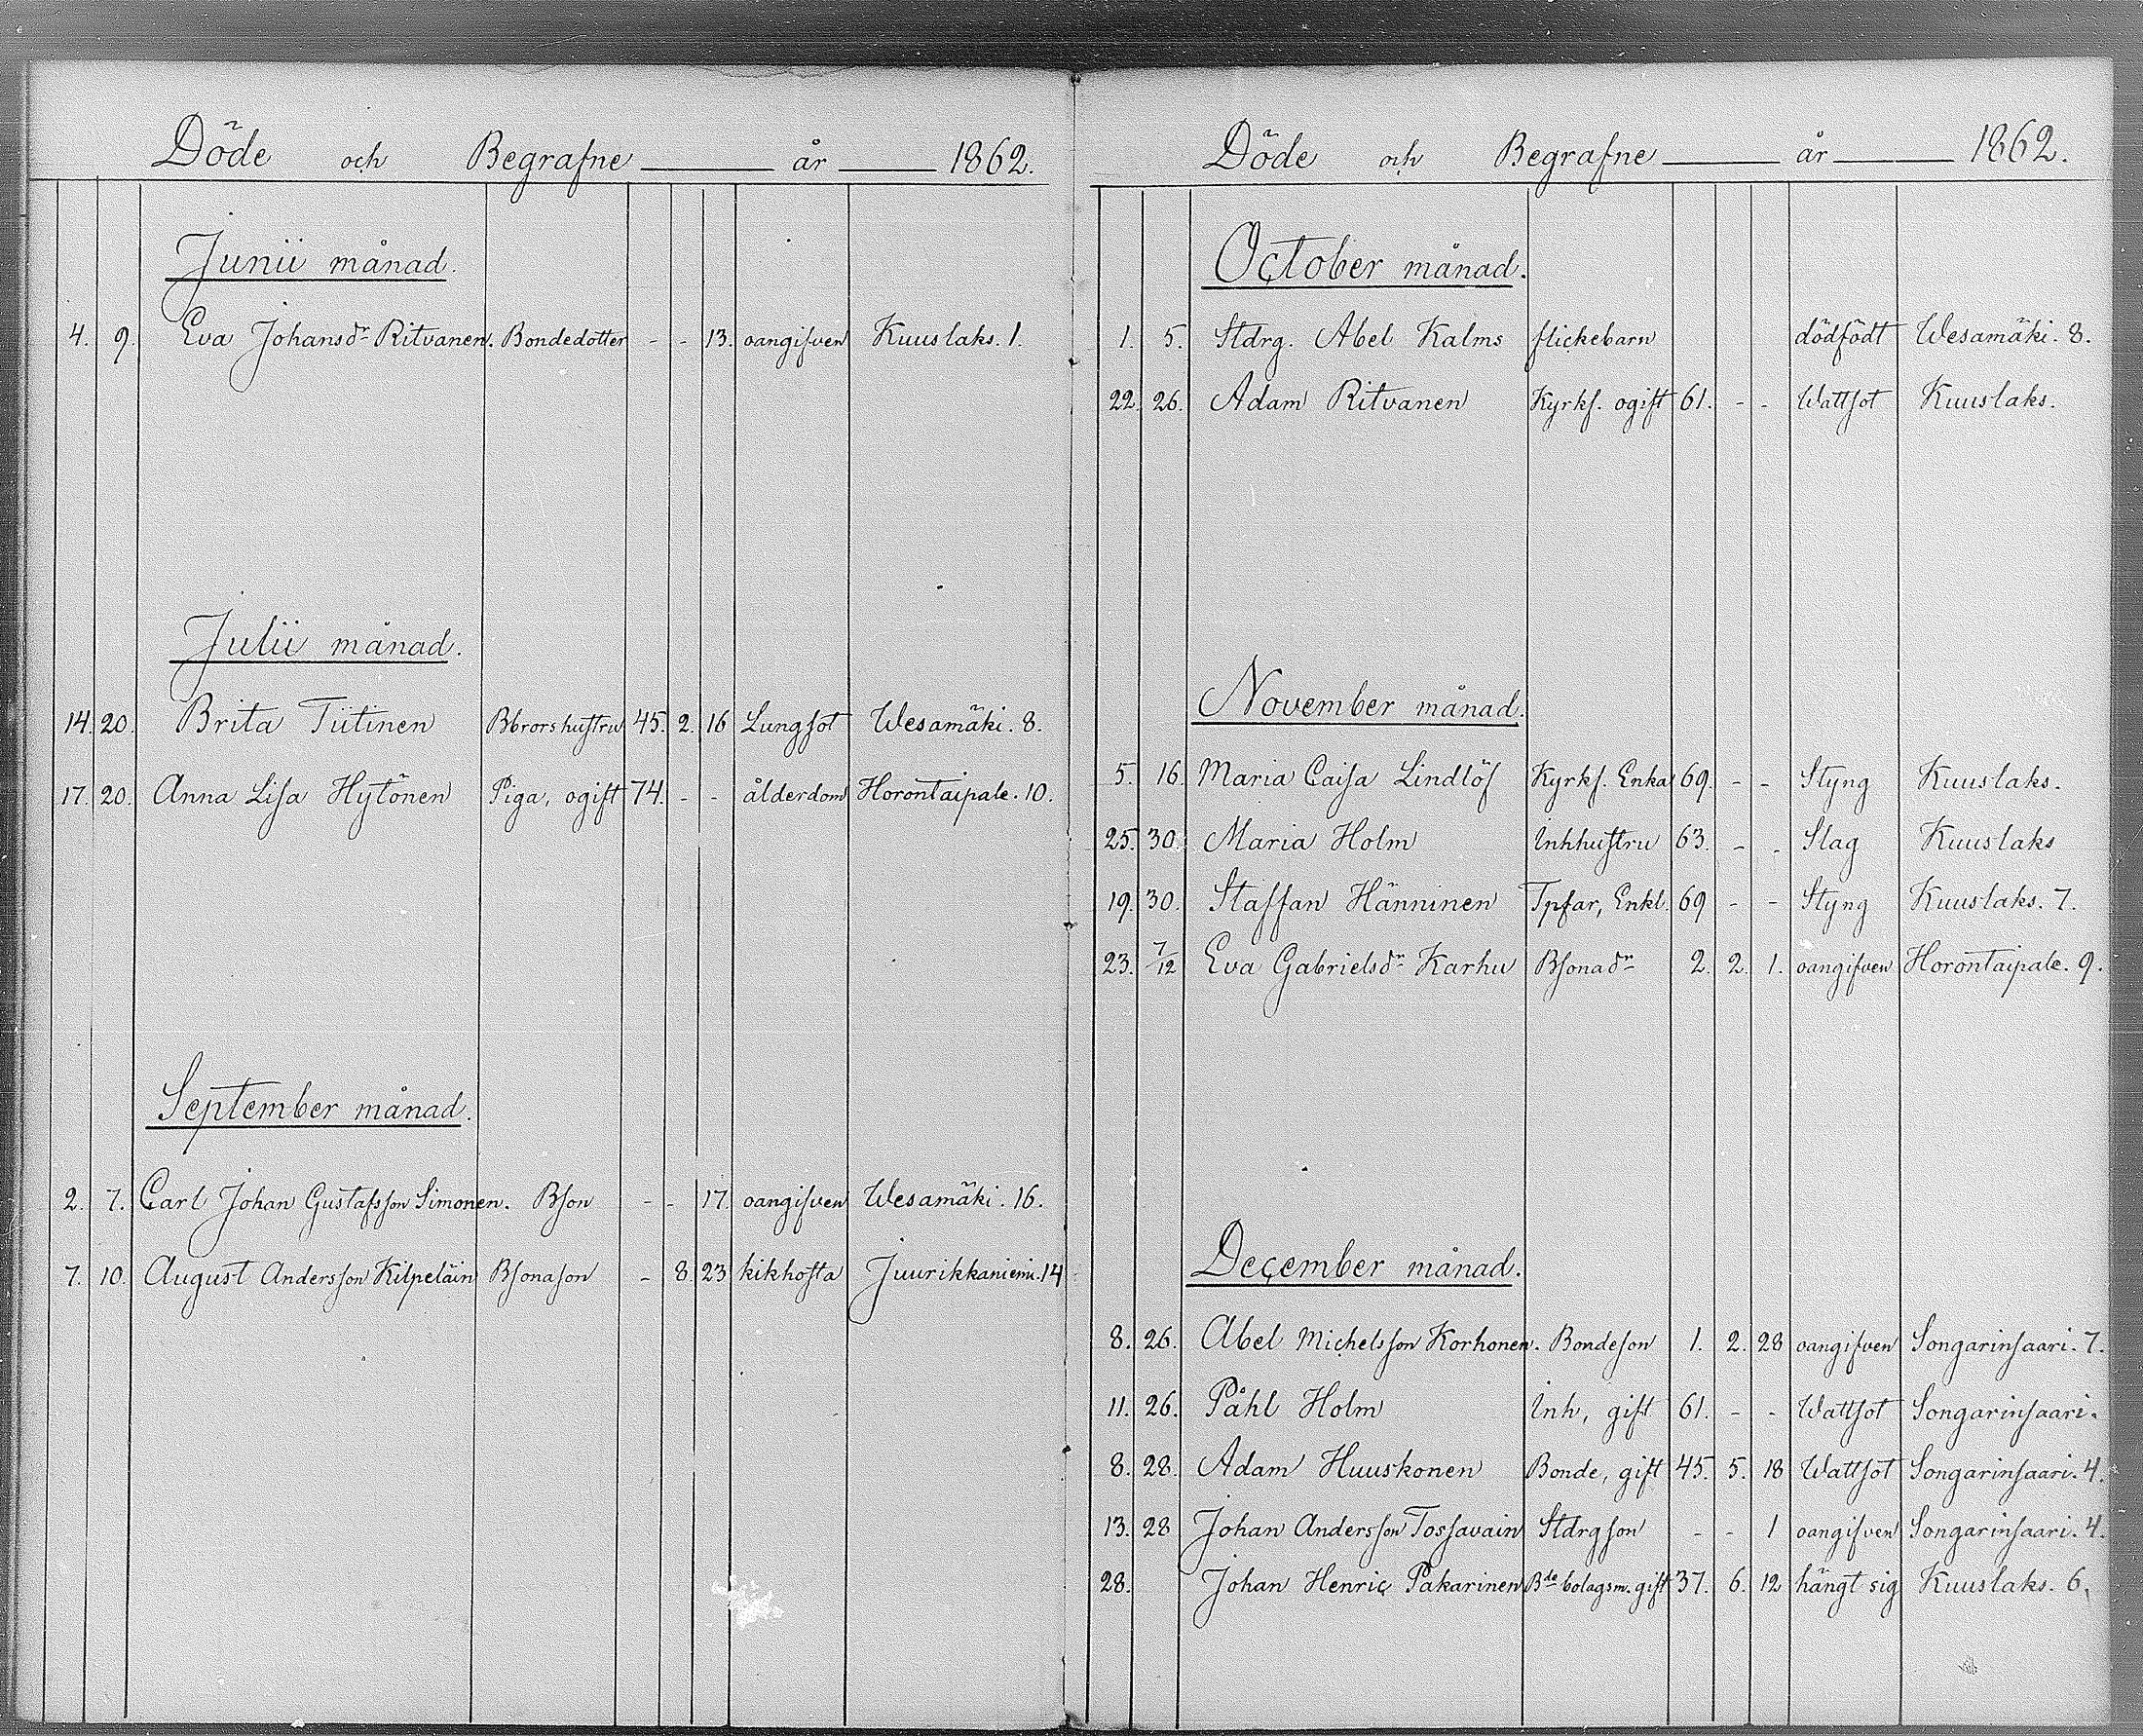 Döde och Begrafne år 1862.
Junii månad.
4. 9. Eva Johansdr Ritvanen. Bondedotter - - 13. oangifven Kuuslaks. 1.
Julii månad.
14. 20. Brita Tiitinen Bbrorshustru 45. 2. 16 Lungsot Wesamäki. 8.
17. 20. Anna Lisa Hytönen Piga, ogift 74. - - ålderdom Horontaipale. 10.
September månad.
2. 7. Carl Johan Gustafsson Simonen. Bson - - 17. oangifven Wesamäki. 16.
7. 10. August Andersson Kilpeläin Bsonason - 8. 23 kikhosta Juurikkaniemi. 14
Döde och Begrafne år 1862.
October månad.
1. 5. Stdrg. Abel Kalms flickebarn dödfödt Wesamäki. 8.
22. 26. Adam Ritvanen Kyrkf. ogift 61. - - Wattsot Kuuslaks.
November månad.
5. 16. Maria Caisa Lindlöf Kyrkf. Enka 69. - - Styng Kuuslaks.
25. 30. Maria Holm Inhhustru 63. - - Slag Kuuslaks
19. 30. Staffan Hänninen Tpfar, Enkl. 69 - - Styng Kuuslaks. 7.
23. 7/12 Eva Gabrielsdr Karhu Bsonadr 2. 2. 1. oangifven Horontaipale. 9.
December månad.
8. 26. Abel Michelsson Korhonen. Bondeson 1. 2. 28 oangifven Songarinsaari. 7.
11. 26. Påhl Holm Inh, gift 61. - - Wattsot Songarinsaari.
8. 28. Adam Huuskonen Bonde, gift 45. 5. 18 Wattsot Songarinsaari. 4.
13. 28 Johan Andersson Tossavain Stdrgson - - 1 oangifven Songarinsaari. 4.
28. Johan Henric Pakarinen Bde bolagsm. gift 37. 6. 12 hängt sig Kuuslaks. 6.